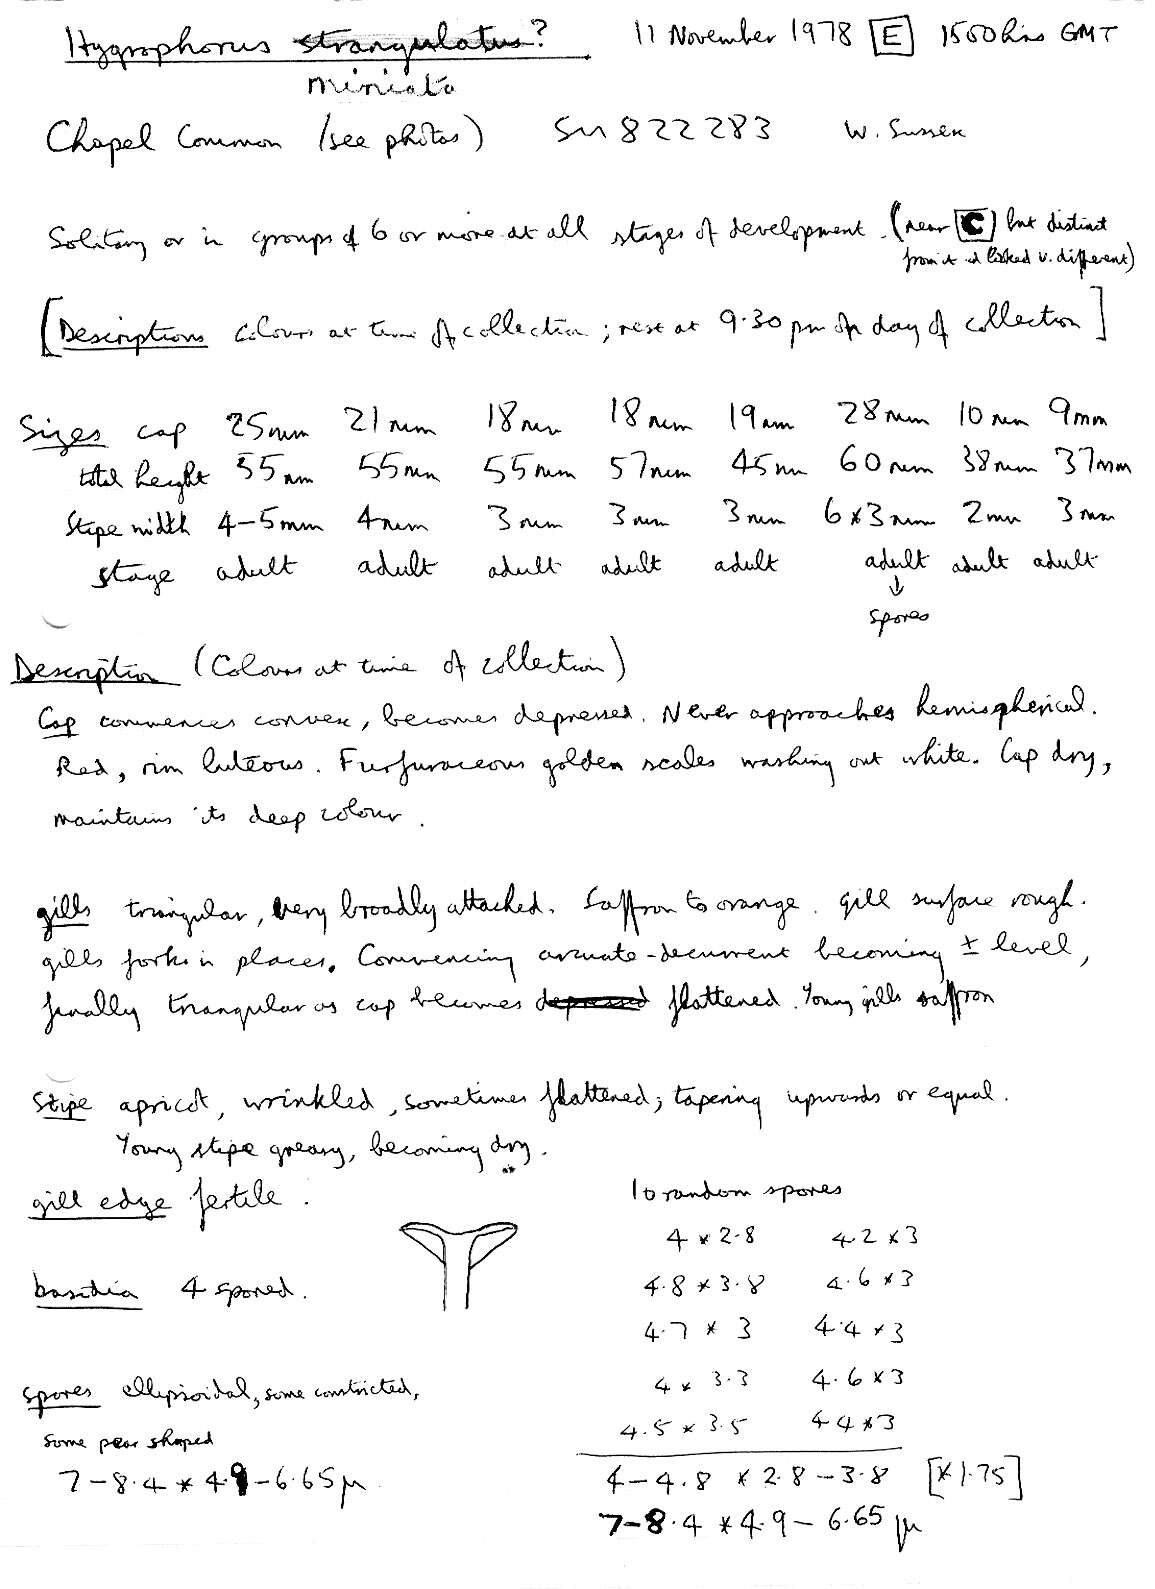 Hygrophorus strangulatus? 11 November 1978 [E] 1500 hrs GMT
miniata
Chapel Common (see photos) SU 822283 W. Sussex
Solitary or in groups of 6 or more at all stages of development. (near [C] but distinct
from it & looked v. different)
[Descriptions colours at time of collection; rest at 9.30 pm on day of collection]
Sizes cap 25mm 21mm 18mm 18mm 19mm 28mm 10mm 9mm
total height 55mm 55mm 55mm 57mm 45mm 60mm 38mm 37mm
Stipe width 4-5mm 4mm 3mm 3mm 3mm 6×3mm 2mm 3mm
stage adult adult adult adult adult adult adult adult
↓
spores
Description (Colours at time of collection)
Cap commences convex, becomes depressed. Never approaches hemispherical.
Red, rim luteous. Furfuraceous golden scales washing out white. Cap dry,
maintains its deep colour.
gills triangular, very broadly attached. Saffron to orange. Gill surface rough.
gills forks in places. Commencing arcuate-decurrent becoming ± level,
finally triangular as cap becomes depressed flattened. Young gills saffron
Stipe apricot, wrinkled, sometimes flattened; tapering upwards or equal.
Young stipe greasy, becoming dry.
gill edge fertile.
basidia 4 spored.
spores ellipsoidal, some constricted,
some pear shaped
7-8.4 × 4.9-6.65 µ
10 random spores
4 × 2.8 4.2 × 3
4.8 × 3.8 4.6 × 3
4.7 × 3 4.4 × 3
4 × 3.3 4.6 × 3
4.5 × 3.5 4.4 × 3
4-4.8 × 2.8-3.8 [×1.75]
7-8.4 × 4.9-6.65 µ